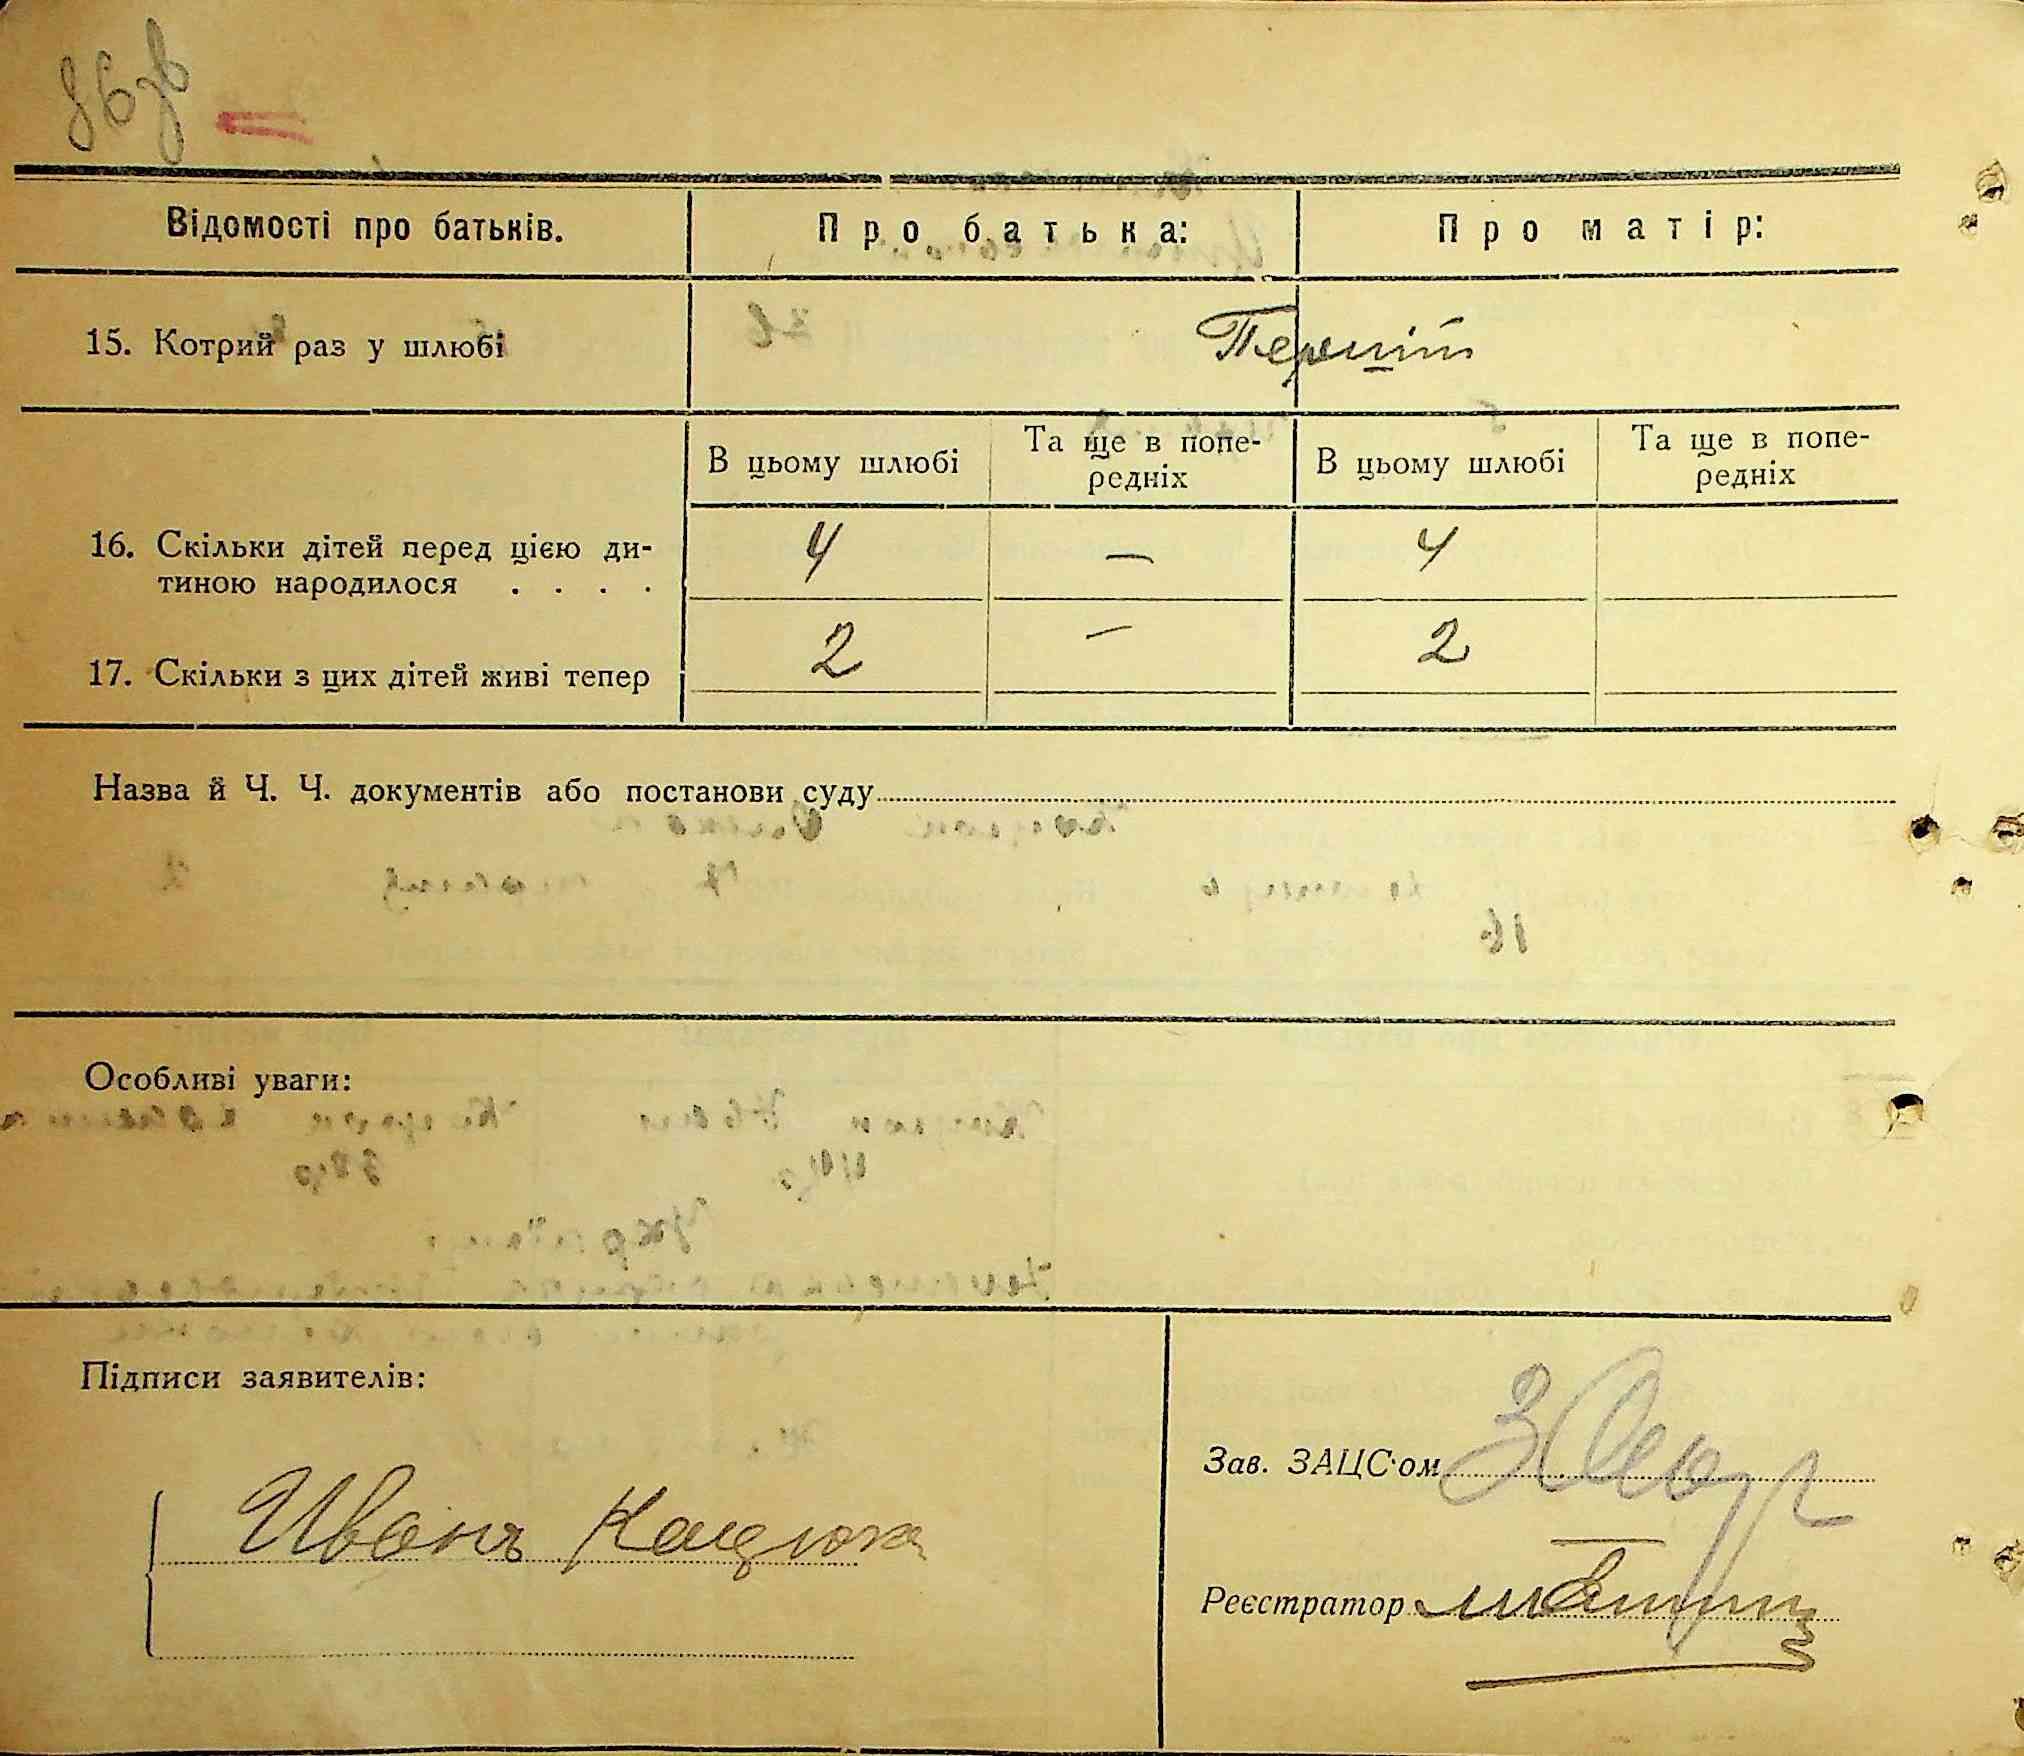 86зв
Відомості про батьків.
Про батька:
Про матір:
15. Котрий раз у шлюбі
Перший
В цьому шлюбі
Та ще в попе-
редніх
В цьому шлюбі
Та ще в попе-
редніх
16. Скільки дітей перед цією ди-
тиною народилося . . . .
4 — 4
17. Скільки з цих дітей живі тепер
2 — 2
Назва й Ч. Ч. документів або постанови суду
Особливі уваги:
Підписи заявителів:
Иванъ Кацюка
Зав. ЗАЦС·ом
Реєстратор